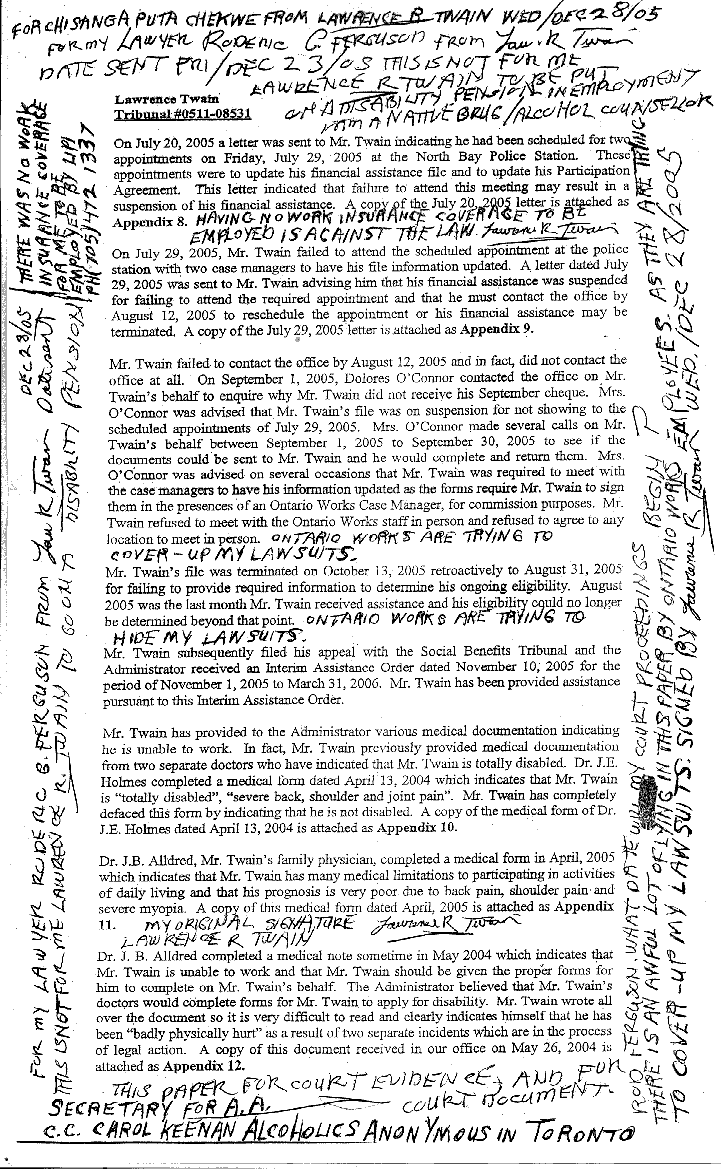 FOR CHISANGA PUTA CHEKWE FROM LAWRENCE R TWAIN WED/DEC 28/05
FOR MY LAWYER RODERIC G FERGUSON FROM Law. R Twain
DATE SENT FRI/DEC 23/05 THIS IS NOT FOR ME
LAWRENCE R TWAIN TO BE PUT
ON A DISABILITY PENSION IN EMPLOYMENT
A NATIVE DRUG/ALCOHOL COUNSELLOR
Lawrence Twain
Tribunal #0511-08531
On July 20, 2005 a letter was sent to Mr. Twain indicating he had been scheduled for two
appointments on Friday, July 29, 2005 at the North Bay Police Station. These
appointments were to update his financial assistance file and to update his Participation
Agreement. This letter indicated that failure to attend this meeting may result in a
suspension of his financial assistance. A copy of the July 20, 2005 letter is attached as
Appendix 8. HAVING NO WORK INSURANCE COVERAGE TO BE
EMPLOYED IS AGAINST THE LAW. Lawrence R. Twain
On July 29, 2005, Mr. Twain failed to attend the scheduled appointment at the police
station with two case managers to have his file information updated. A letter dated July
29, 2005 was sent to Mr. Twain advising him that his financial assistance was suspended
for failing to attend the required appointment and that he must contact the office by
August 12, 2005 to reschedule the appointment or his financial assistance may be
terminated. A copy of the July 29, 2005 letter is attached as Appendix 9.
Mr. Twain failed to contact the office by August 12, 2005 and in fact, did not contact the
office at all. On September 1, 2005, Dolores O'Connor contacted the office on Mr.
Twain's behalf to enquire why Mr. Twain did not receive his September cheque. Mrs.
O'Connor was advised that Mr. Twain's file was on suspension for not showing to the
scheduled appointments of July 29, 2005. Mrs. O'Connor made several calls on Mr.
Twain's behalf between September 1, 2005 to September 30, 2005 to see if the
documents could be sent to Mr. Twain and he would complete and return them. Mrs.
O'Connor was advised on several occasions that Mr. Twain was required to meet with
the case managers to have his information updated as the forms require Mr. Twain to sign
them in the presences of an Ontario Works Case Manager, for commission purposes. Mr.
Twain refused to meet with the Ontario Works staff in person and refused to agree to any
location to meet in person. ONTARIO WORKS ARE TRYING TO
COVER-UP MY LAWSUITS.
Mr. Twain's file was terminated on October 13, 2005 retroactively to August 31, 2005
for failing to provide required information to determine his ongoing eligibility. August
2005 was the last month Mr. Twain received assistance and his eligibility could no longer
be determined beyond that point. ONTARIO WORKS ARE TRYING TO
HIDE MY LAWSUITS.
Mr. Twain subsequently filed his appeal with the Social Benefits Tribunal and the
Administrator received an Interim Assistance Order dated November 10, 2005 for the
period of November 1, 2005 to March 31, 2006. Mr. Twain has been provided assistance
pursuant to this Interim Assistance Order.
Mr. Twain has provided to the Administrator various medical documentation indicating
he is unable to work. In fact, Mr. Twain previously provided medical documentation
from two separate doctors who have indicated that Mr. Twain is totally disabled. Dr. J.E.
Holmes completed a medical form dated April 13, 2004 which indicates that Mr. Twain
is "totally disabled", "severe back, shoulder and joint pain". Mr. Twain has completely
defaced this form by indicating that he is not disabled. A copy of the medical form of Dr.
J.E. Holmes dated April 13, 2004 is attached as Appendix 10.
Dr. J.B. Alldred, Mr. Twain's family physician, completed a medical form in April, 2005
which indicates that Mr. Twain has many medical limitations to participating in activities
of daily living and that his prognosis is very poor due to back pain, shoulder pain and
severe myopia. A copy of this medical form dated April, 2005 is attached as Appendix
11. MY ORIGINAL SIGNATURE Lawrence R Twain
LAWRENCE R TWAIN
Dr. J. B. Alldred completed a medical note sometime in May 2004 which indicates that
Mr. Twain is unable to work and that Mr. Twain should be given the proper forms for
him to complete on Mr. Twain's behalf. The Administrator believed that Mr. Twain's
doctors would complete forms for Mr. Twain to apply for disability. Mr. Twain wrote all
over the document so it is very difficult to read and clearly indicates himself that he has
been "badly physically hurt" as a result of two separate incidents which are in the process
of legal action. A copy of this document received in our office on May 26, 2004 is
attached as Appendix 12.
THIS PAPER FOR COURT EVIDENCE, AND FOR
COURT DOCUMENT.
SECRETARY FOR A.A.
C.C. CAROL KEENAN ALCOHOLICS ANONYMOUS IN TORONTO
THERE WAS NO WORK
INSURANCE COVERAGE
FOR ME TO BE
EMPLOYED BY
PH(705)472 1337
DEC 28/05
FOR MY LAWYER RODERIC G. FERGUSON FROM Law R Twain
THIS IS NOT FOR ME LAWRENCE R. TWAIN TO GO ON A DISABILITY PENSION
ROD FERGUSON. WHAT DATE WILL MY COURT PROCEEDINGS BEGIN?
THERE IS AN AWFUL LOT OF LYING IN THIS PAPER BY ONTARIO WORKS EMPLOYEES. AS THEY ARE TRYING
TO COVER-UP MY LAWSUITS. SIGNED BY Lawrence R Twain WED./DEC 28/2005